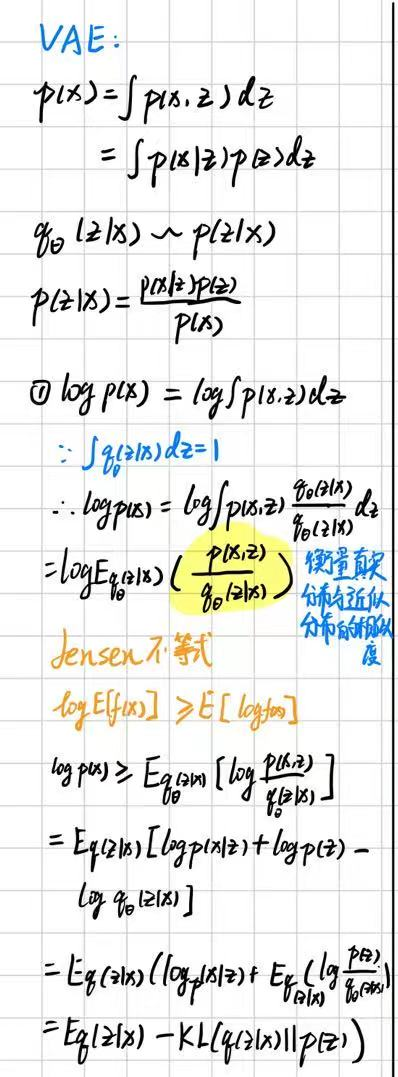 VAE:
p(x) = ∫ p(x,z) dz
= ∫ p(x|z) p(z) dz
q_θ (z|x) ~ p(z|x)
p(z|x) = p(x|z)p(z) / p(x)
① log p(x) = log ∫ p(x,z) dz
∵ ∫ q_θ(z|x) dz = 1
∴ log p(x) = log ∫ p(x,z) q_θ(z|x) / q_θ(z|x) dz
= log E_{q_θ(z|x)} ( p(x,z) / q_θ(z|x) )
衡量真实
分布与近似
分布的相似
度
Jensen 不等式
log E[f(x)] ≥ E[log f(x)]
log p(x) ≥ E_{q_θ(z|x)} [log p(x,z) / q_θ(z|x)]
= E_{q(z|x)} [log p(x|z) + log p(z) −
log q_θ(z|x)]
= E_{q(z|x)} (log p(x|z) + E_{q(z|x)} (log p(z) / q_θ(z|x))
= E_{q(z|x)} − KL(q(z|x)||p(z))